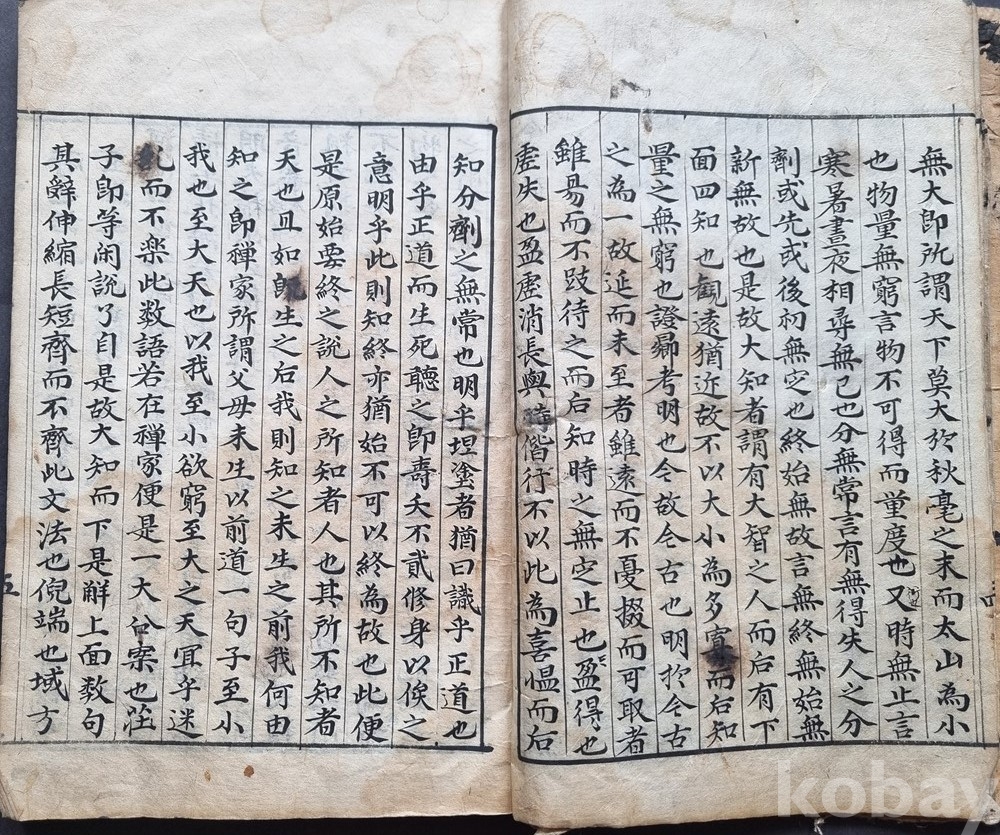 無大即所謂天下莫大於秋毫之末而太山為小
也物量無窮言物不可得而量度也又時無止言
寒暑晝夜相尋無已也分無常言有無得失人之分
劑或先或後初無定也終始無故言無終無始無
新無故也是故大知者謂有大智之人而后有下
面四知也觀遠猶近故不以大小為多寡而后知
量之無窮也證曏考明也今故今古也明於今古
之為一故延而未至者雖遠而不憂掇而可取者
雖易而不跂待之而后知時之無定止也盈得也
虛失也盈虛消長與時偕行不以此為喜慍而后
知分劑之無常也明乎坦塗者猶曰識乎正道也
由乎正道而生死聽之即壽夭不貳修身以俟之
意明乎此則知終亦猶始不可以終為故也此便
是原始要終之說人之所知者人也其所不知者
天也且如既生之后我則知之未生之前我何由
知之即禪家所謂父母未生以前道一句子至小
我也至大天也以我至小欲窮至大之天宜乎迷
亂而不楽此数語若在禪家便是一大公案也莊
子即等闲説了自是故大知而下是解上面数句
其辤伸縮長短齊而不齊此文法也倪端也域方
五
kobay